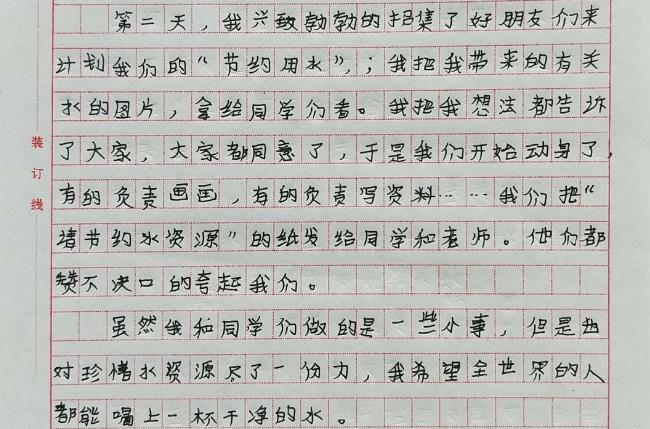 第二天，我兴致勃勃的招集了好朋友们来
计划我们的“节约用水”,；我把我带来的有关
水的图片，拿给同学们看。我把我想法都告诉
了大家，大家都同意了，于是我们开始动身了，
有的负责画画，有的负责写资料……我们把“
请节约水资源”的纸发给同学和老师。他们都
赞不决口的夸起我们。
虽然我和同学们做的是一些小事，但是也
对珍惜水资源尽了一份力，我希望全世界的人
都能喝上一杯干净的水。
装订线